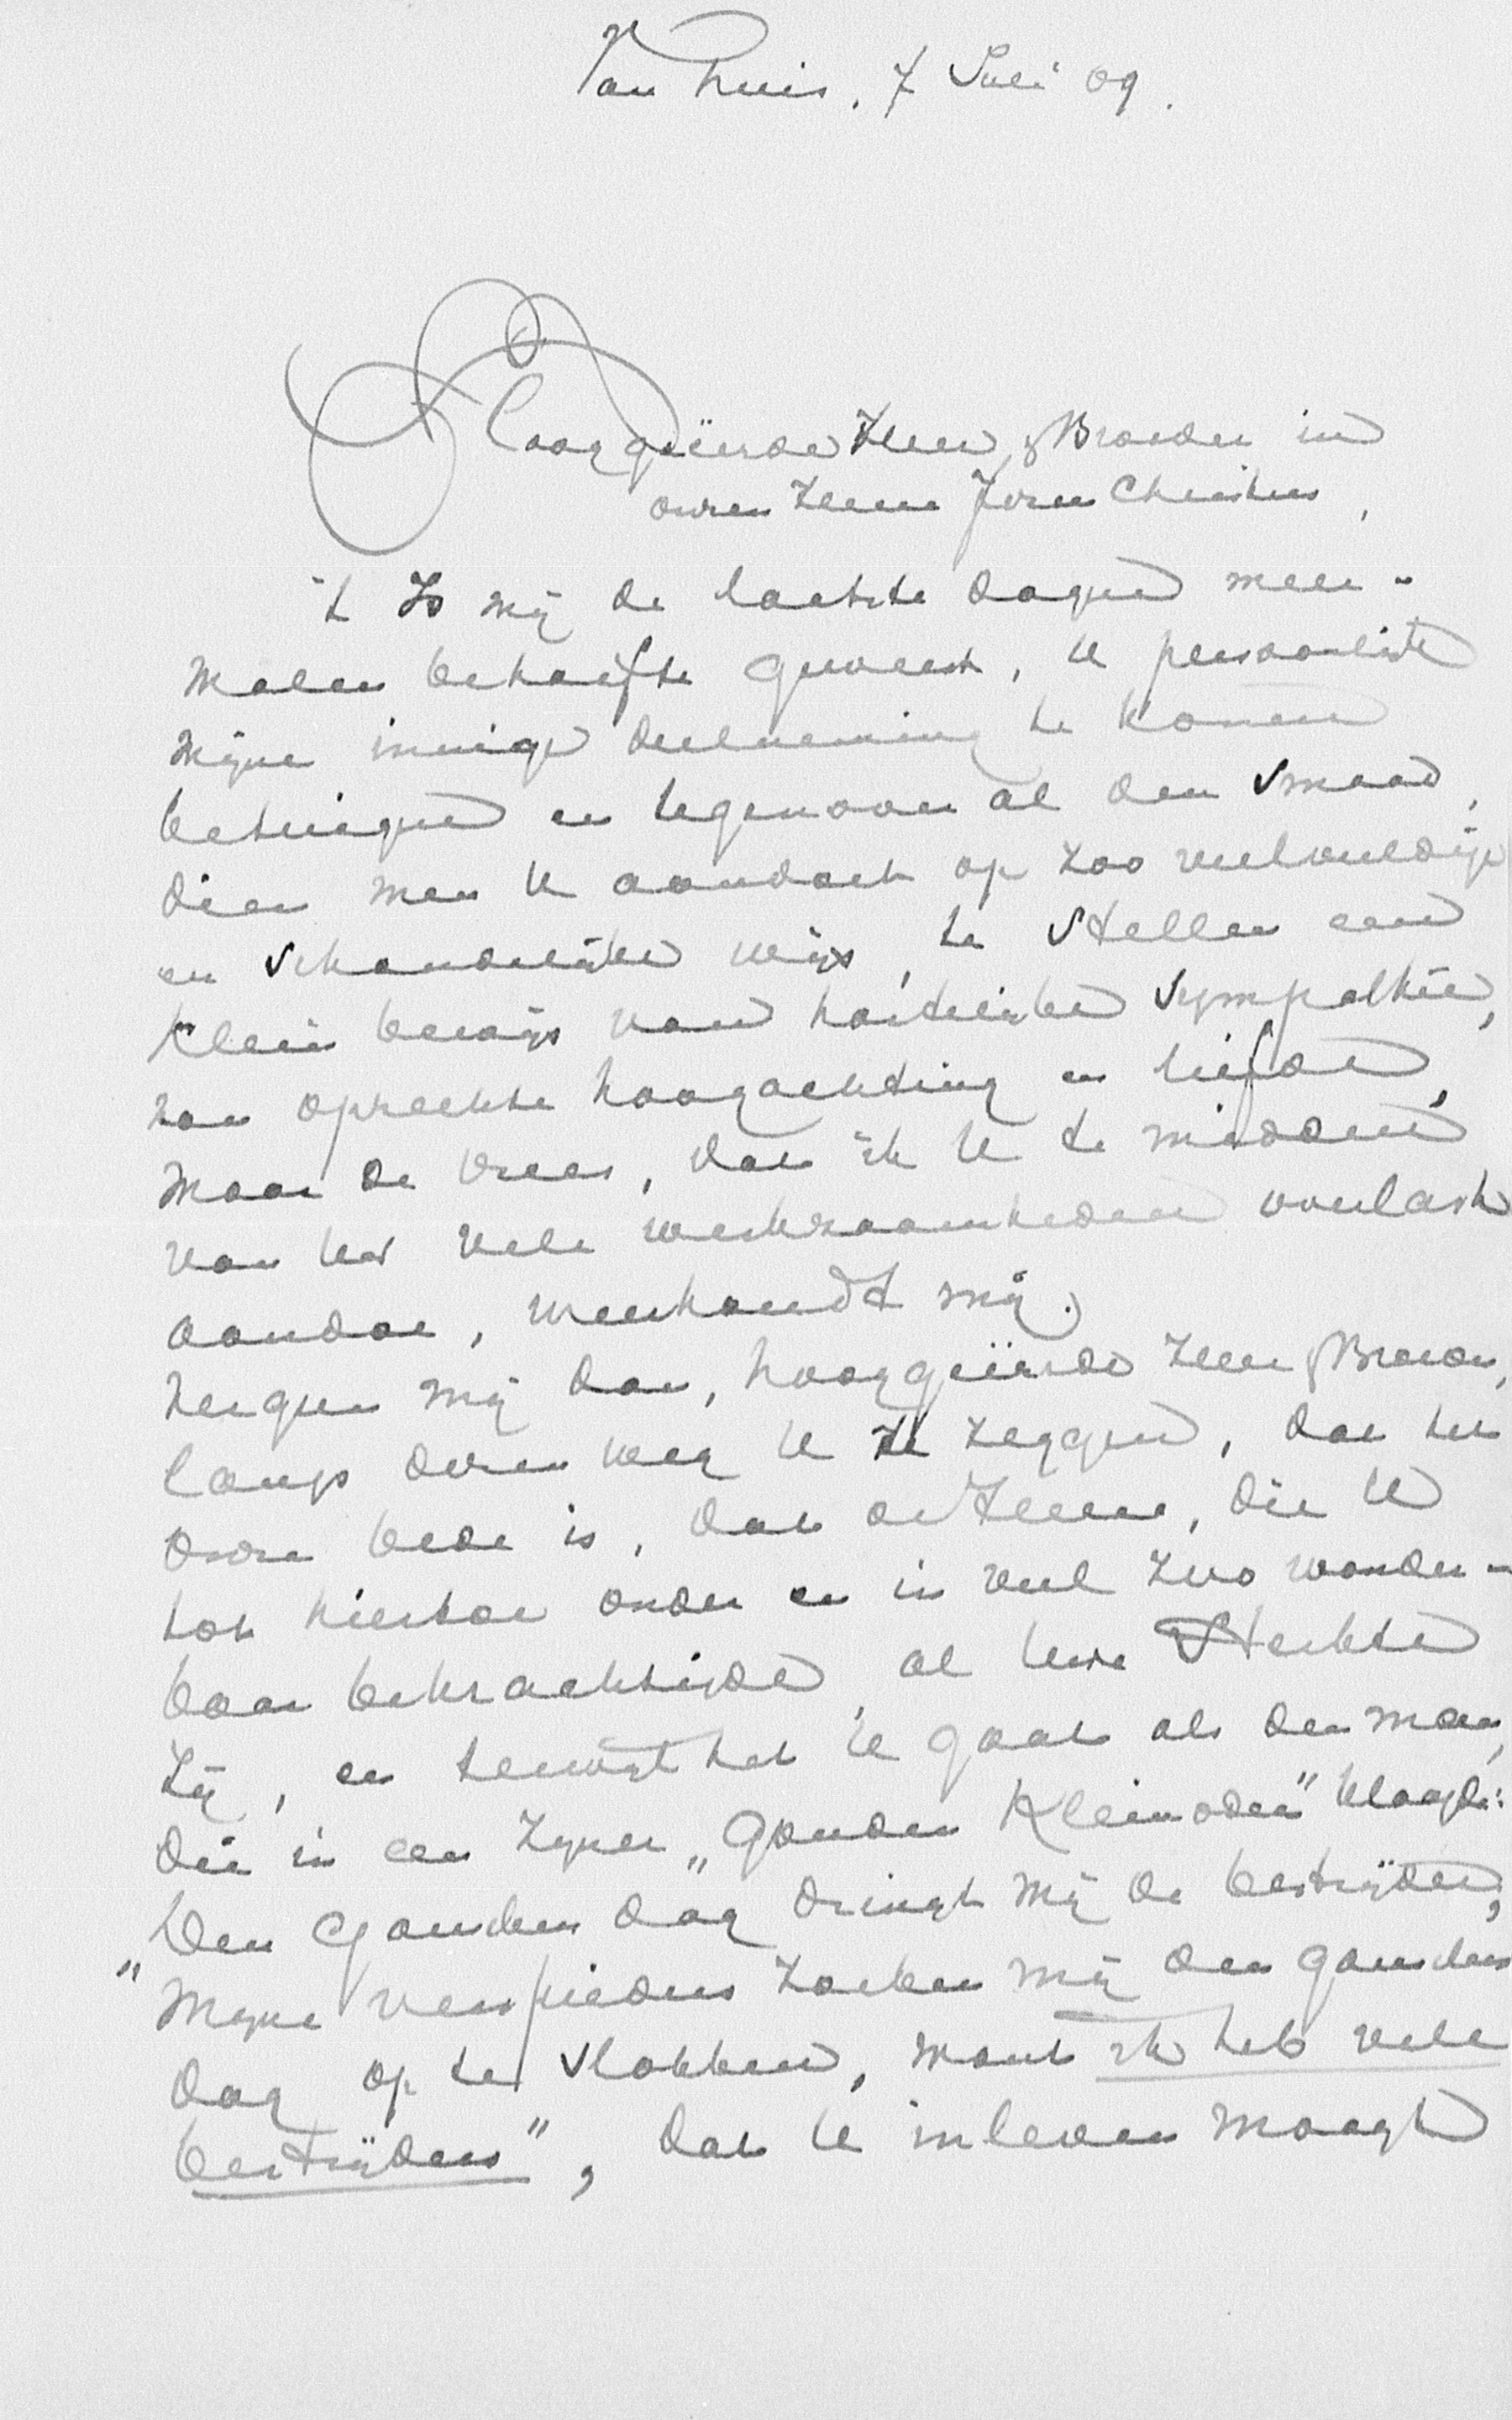 Van huis, 7 Juli 09.
Hooggeëerde Heer & Broeder in
onzen Heere Jezus Christus,
't Is mij de laatste dagen meer-
malen behoefte geweest, U persoonlijk
mijne innige deelneming te komen
betuigen en tegenover al den smaad,
dien men U aandoet op zoo veelvuldige
en schandelijke wijs, te stellen een
klein bewijs van hartelijke sympathie,
van oprechte hoogachting en liefde,
maar de vrees, dat ik U te midden
van Uw vele werkzaamheden overlast
aandoe, weerhoudt mij.
Vergun mij dan, hooggeëerde Heer & Broeder,
langs dezen weg U te zeggen, dat het
onze bede is, dat de Heere, die U
tot hiertoe onder en in veel zoo wonder-
baar bekrachtigde, al Uwe Sterkte
zij, en terwijl het U gaat als den man,
die in een zijner „Gouden Kleinoden" klaagde:
„Den ganschen dag dringt mij de bestrijder;
Mijne verspieders zoeken mij den ganschen
dag op te slokken, want ik heb vele
bestrijders", dat U inleven moogt